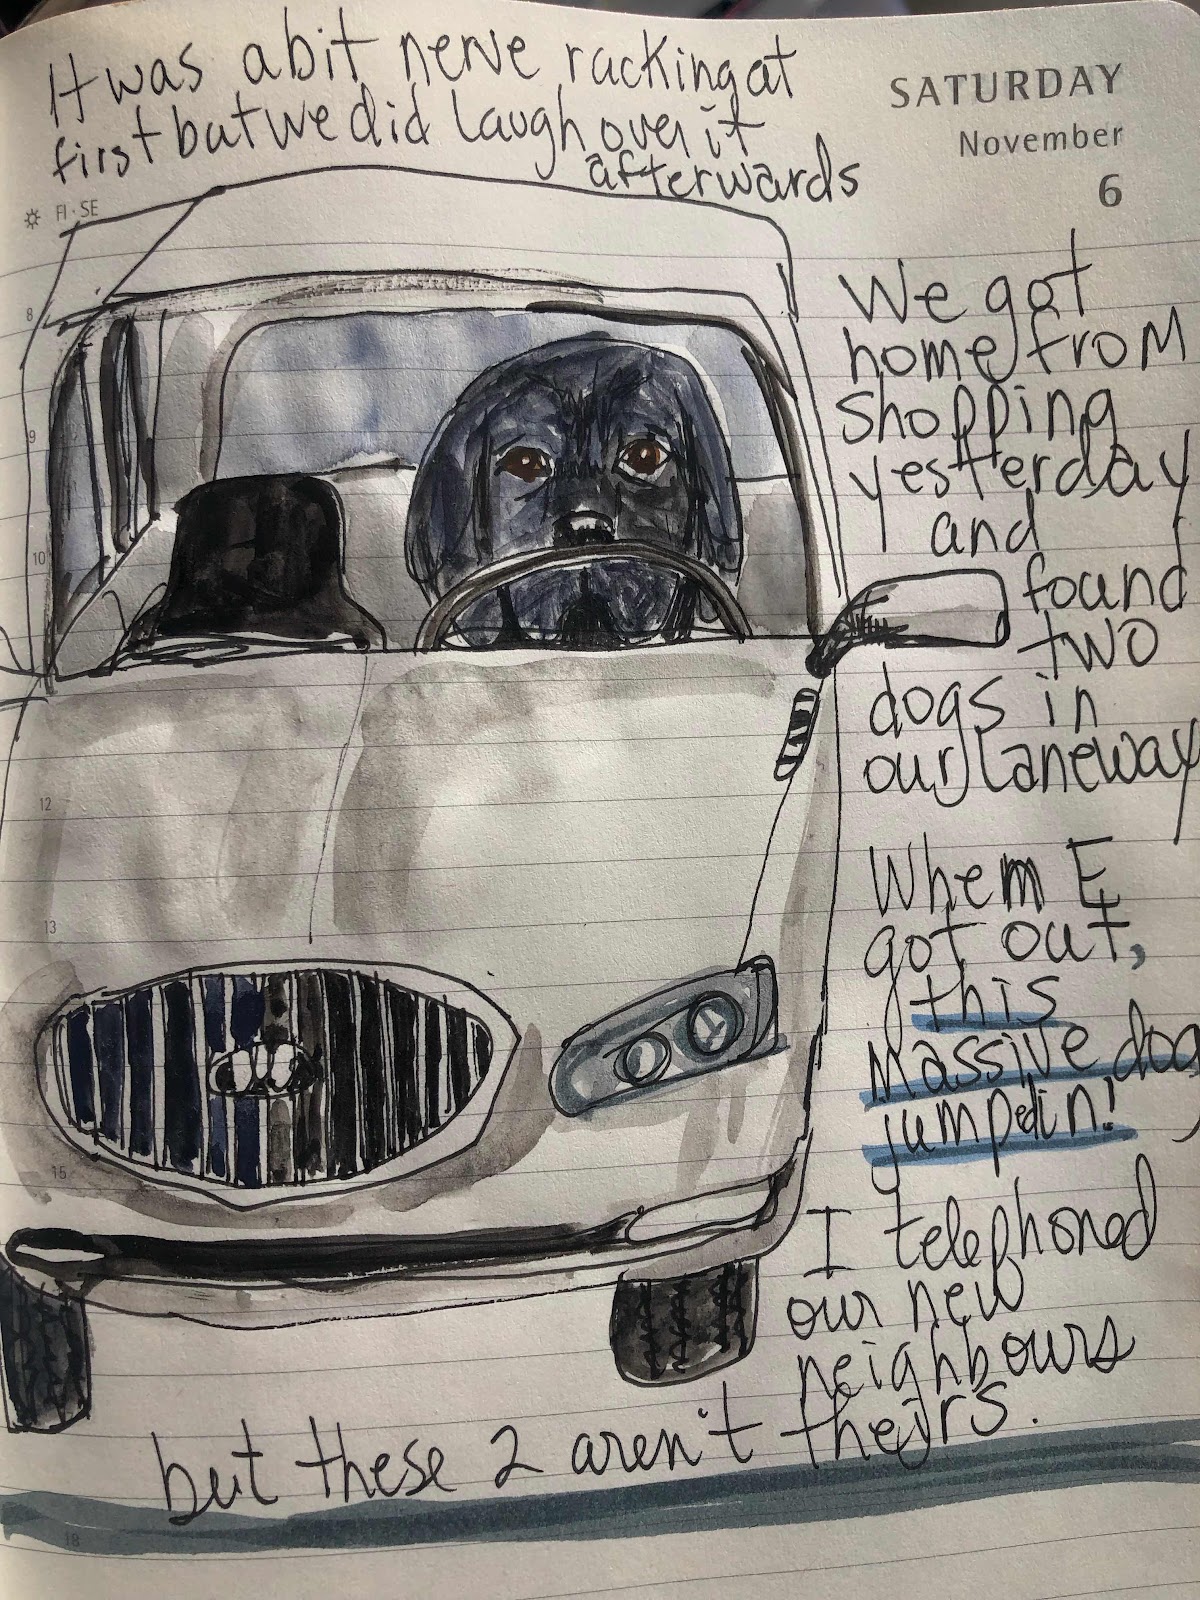 It was a bit nerve racking at
first but we did laugh over it
afterwards
SATURDAY
November
6
FI · SE
8
9
10
12
13
15
18
We got
home from
shopping
yesterday
and
found
two
dogs in
our laneway
When E
got out,
this
massive dog
jumped in!
I telephoned
our new
neighbours
but these 2 aren't theirs.